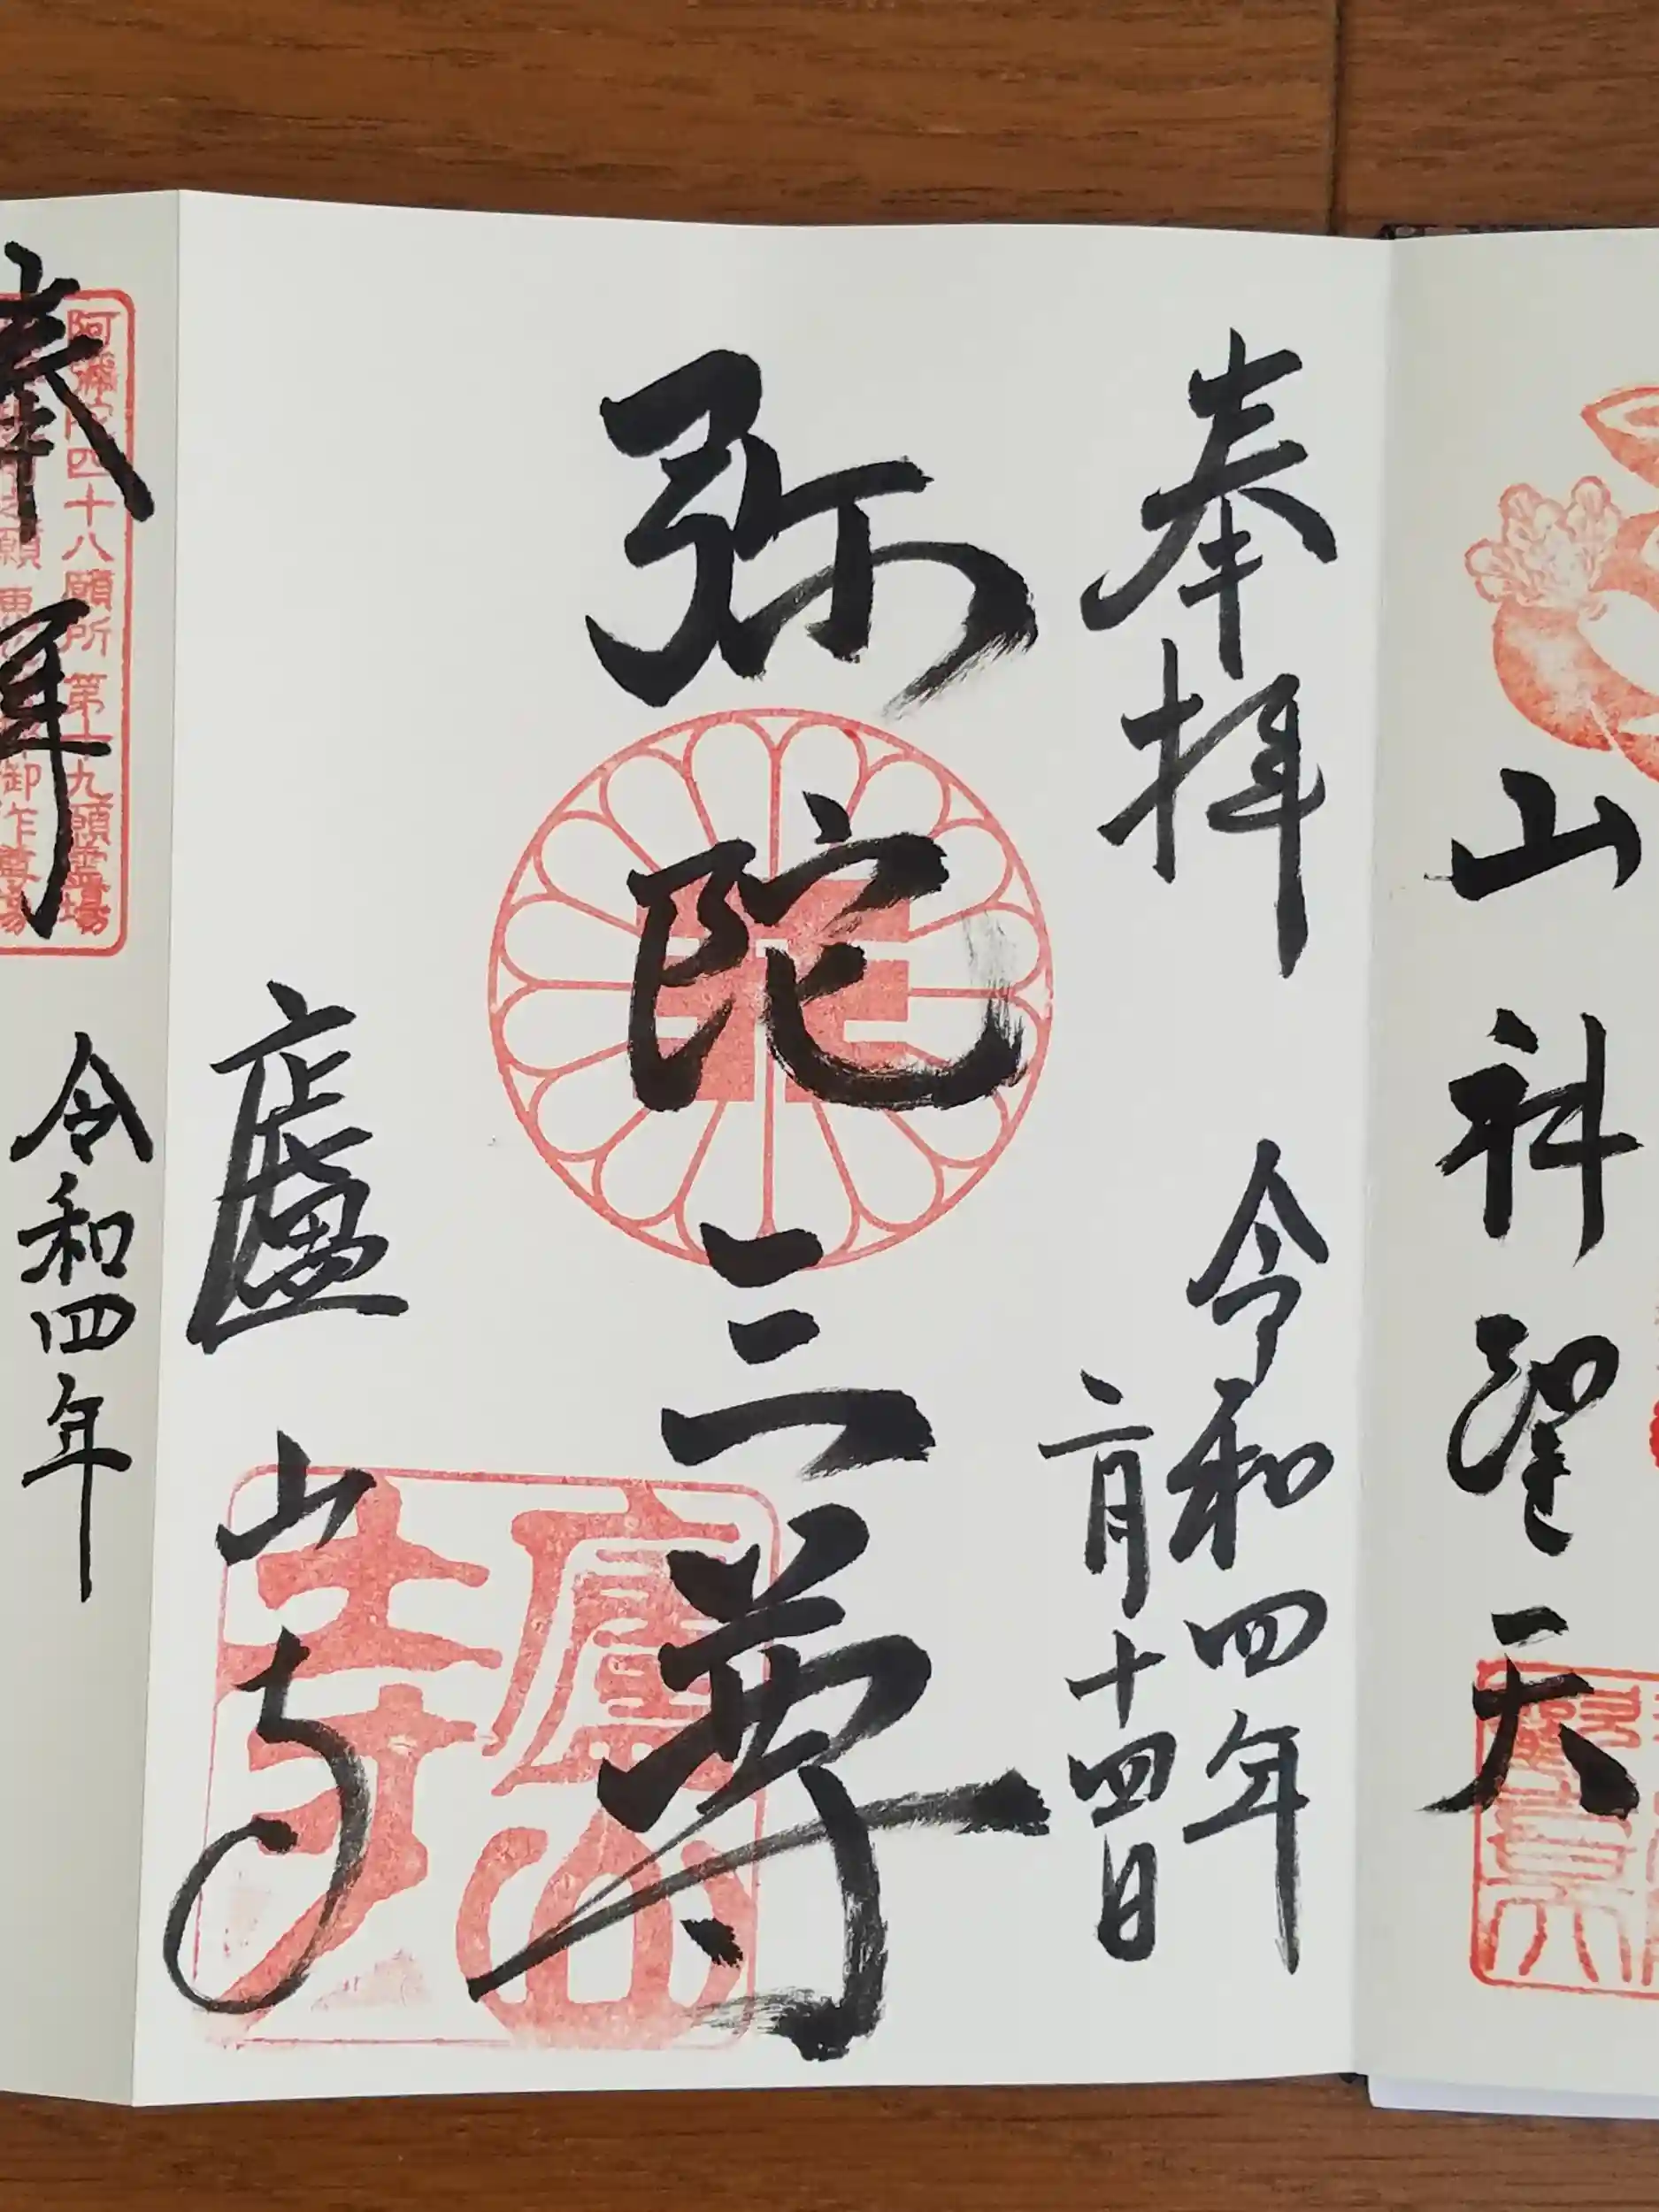 山科聖天
奉拝
令和四年
二月十四日
弥陀三尊
廬山寺
廬山寺
阿弥陀四十八願所 第十九願霊場
奉拝
令和四年